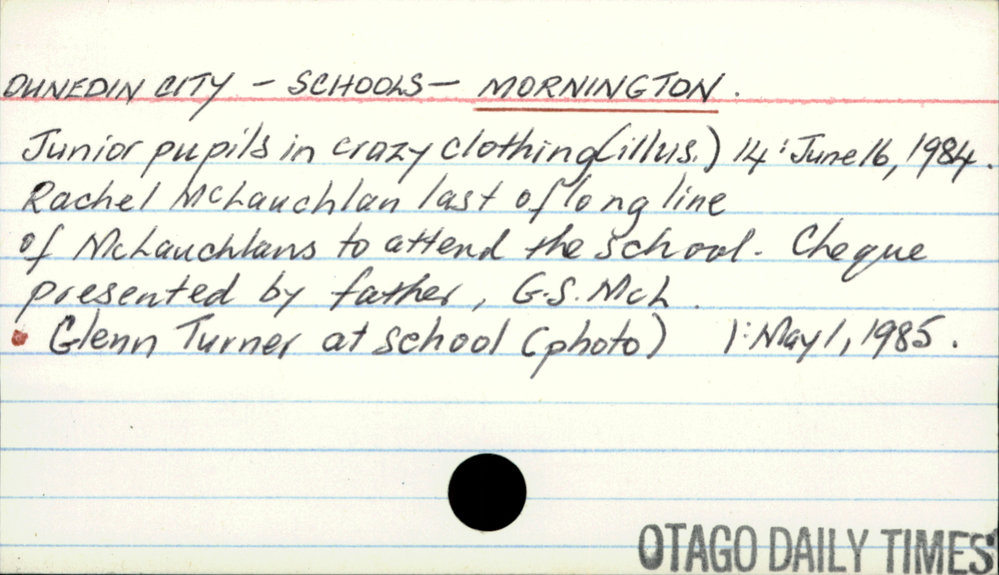 DUNEDIN CITY - SCHOOLS - MORNINGTON.
Junior pupils in crazy clothing (illus.) 14:June 16, 1984.
Rachel McLauchlan last of long line
of McLauchlans to attend the school. Cheque
presented by father, G.S. McL.
Glenn Turner at school (photo) 1:May 1, 1985.
OTAGO DAILY TIMES